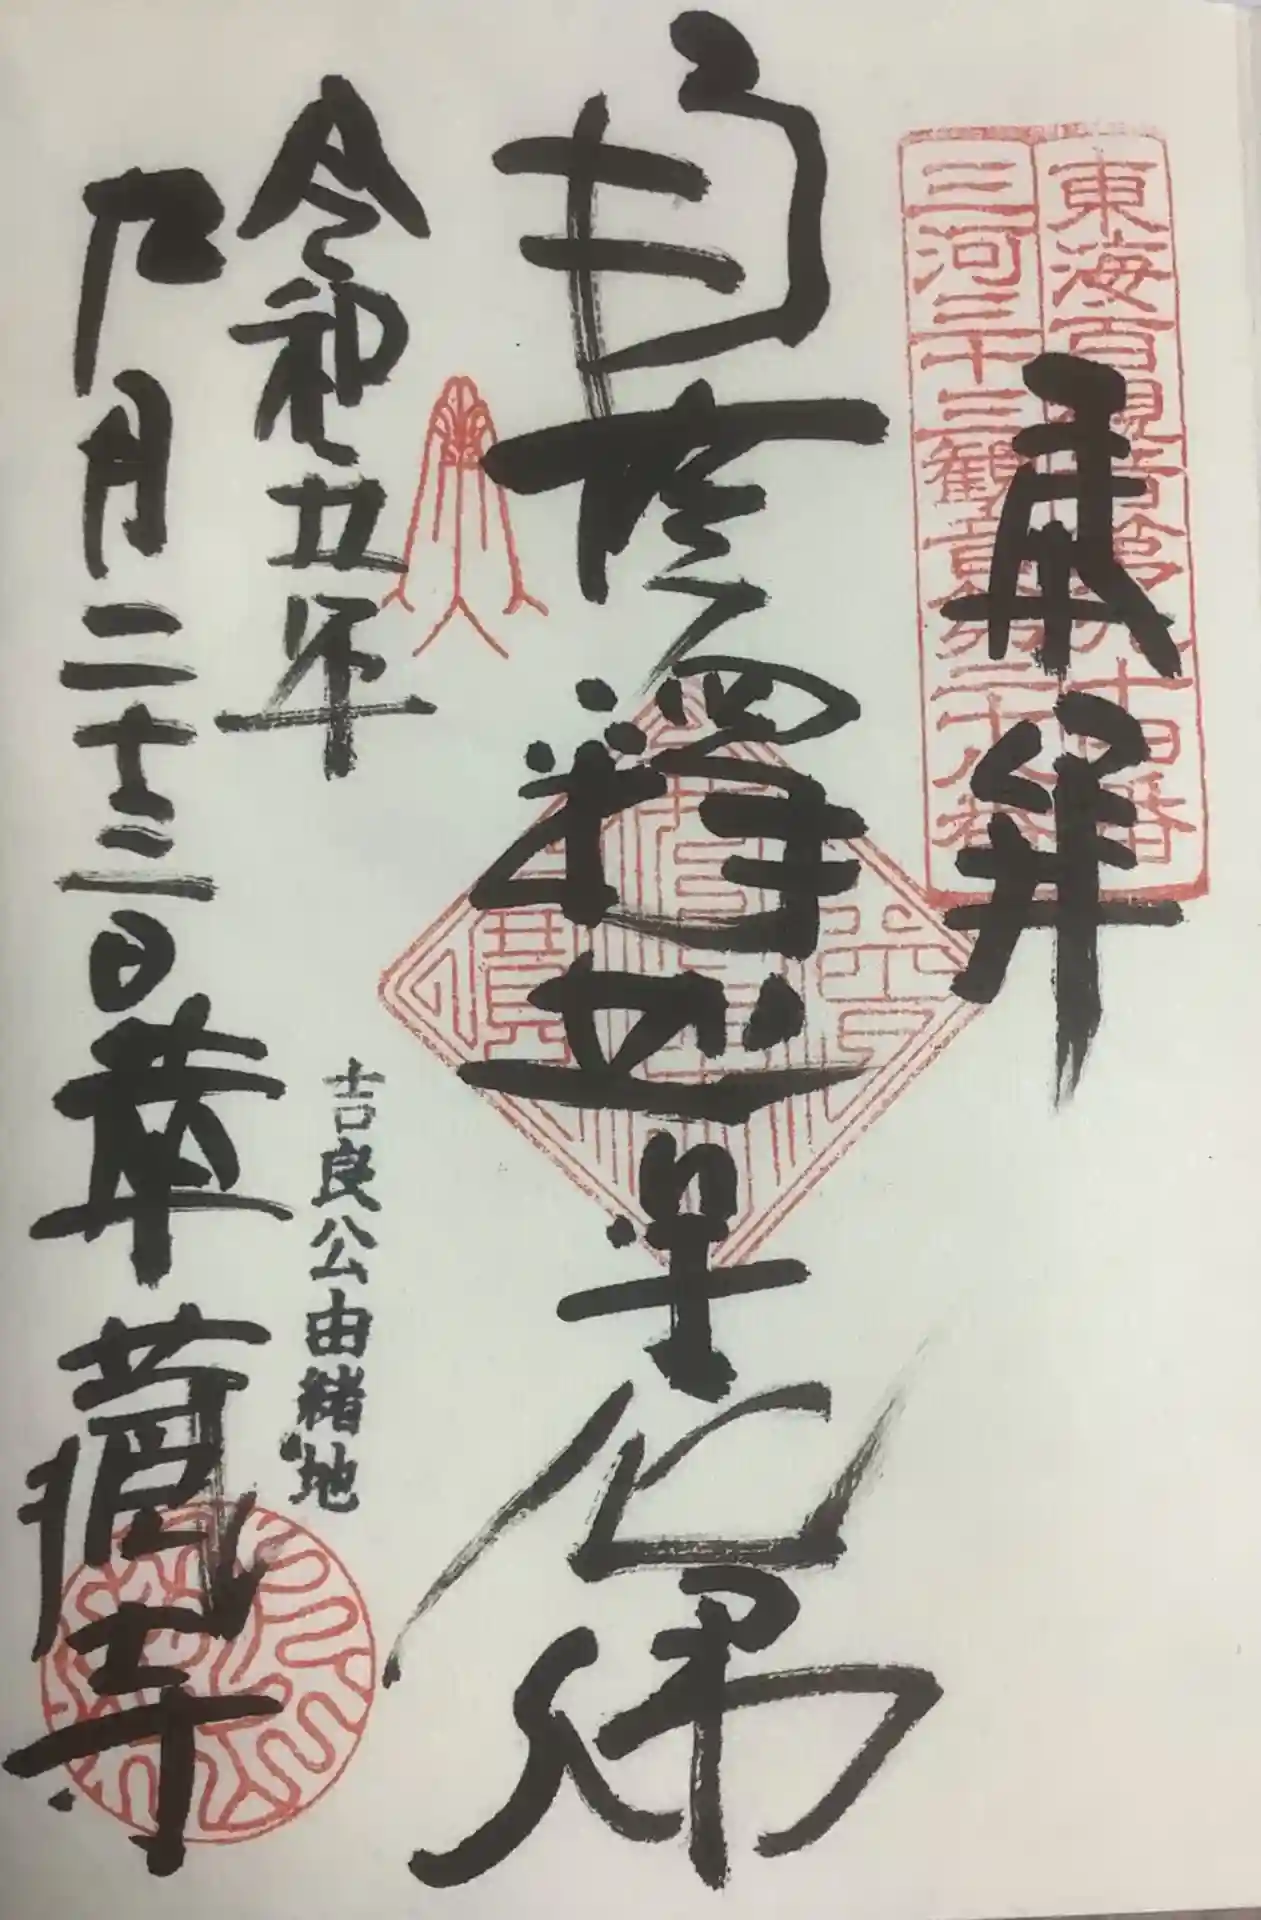 奉拝
東海百観音第九十四番
三河三十三観音第二十八番
釋迦牟尼佛
令和五年
月二十 日 華藏寺
吉良公由緒地